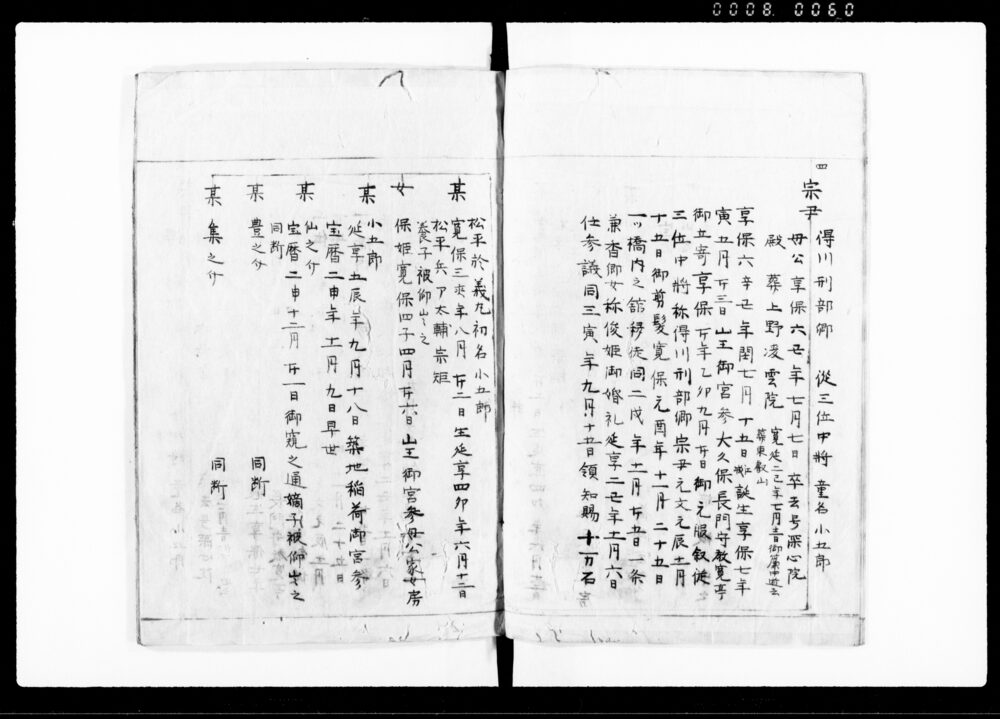 0008 0060
四
宗尹 得川刑部卿 從三位中將 童名小五郎
母公享保六丑年七月七日卒去号深心院
殿 葬上野凌雲院
享保六辛丑年閏七月十五日誕生享保七年
寅五月廿三日山王御宮参大久保長門守教寛亭
御立寄享保廿年乙卯九月廿日御元服叙従
三位中將称得川刑部卿宗尹元文元辰十二月
十五日御剪髪寛保元酉年十一月二十五日
一ツ橋内之舘移徒同二戌年十二月廿五日一条
兼香卿女称俊姫御婚礼延享二丑年十二月六日
任参議同三寅年九月十五日領知賜十万石
某 松平於義九初名小五郎
寛保三亥年八月廿二日生延享四卯年六月十二日
松平兵ア太輔宗矩
養子被仰出之
女 保姫寛保四子四月廿六日山王御宮参母公家女房
某 小五郎
延享五辰年九月十八日築地稲荷御宮参
宝暦二申年十二月九日早世
某 仙之介
宝暦二申十二月廿一日御寛之通嫡子被仰出之
同断
某 豊之介 同断
某 集之介 同断